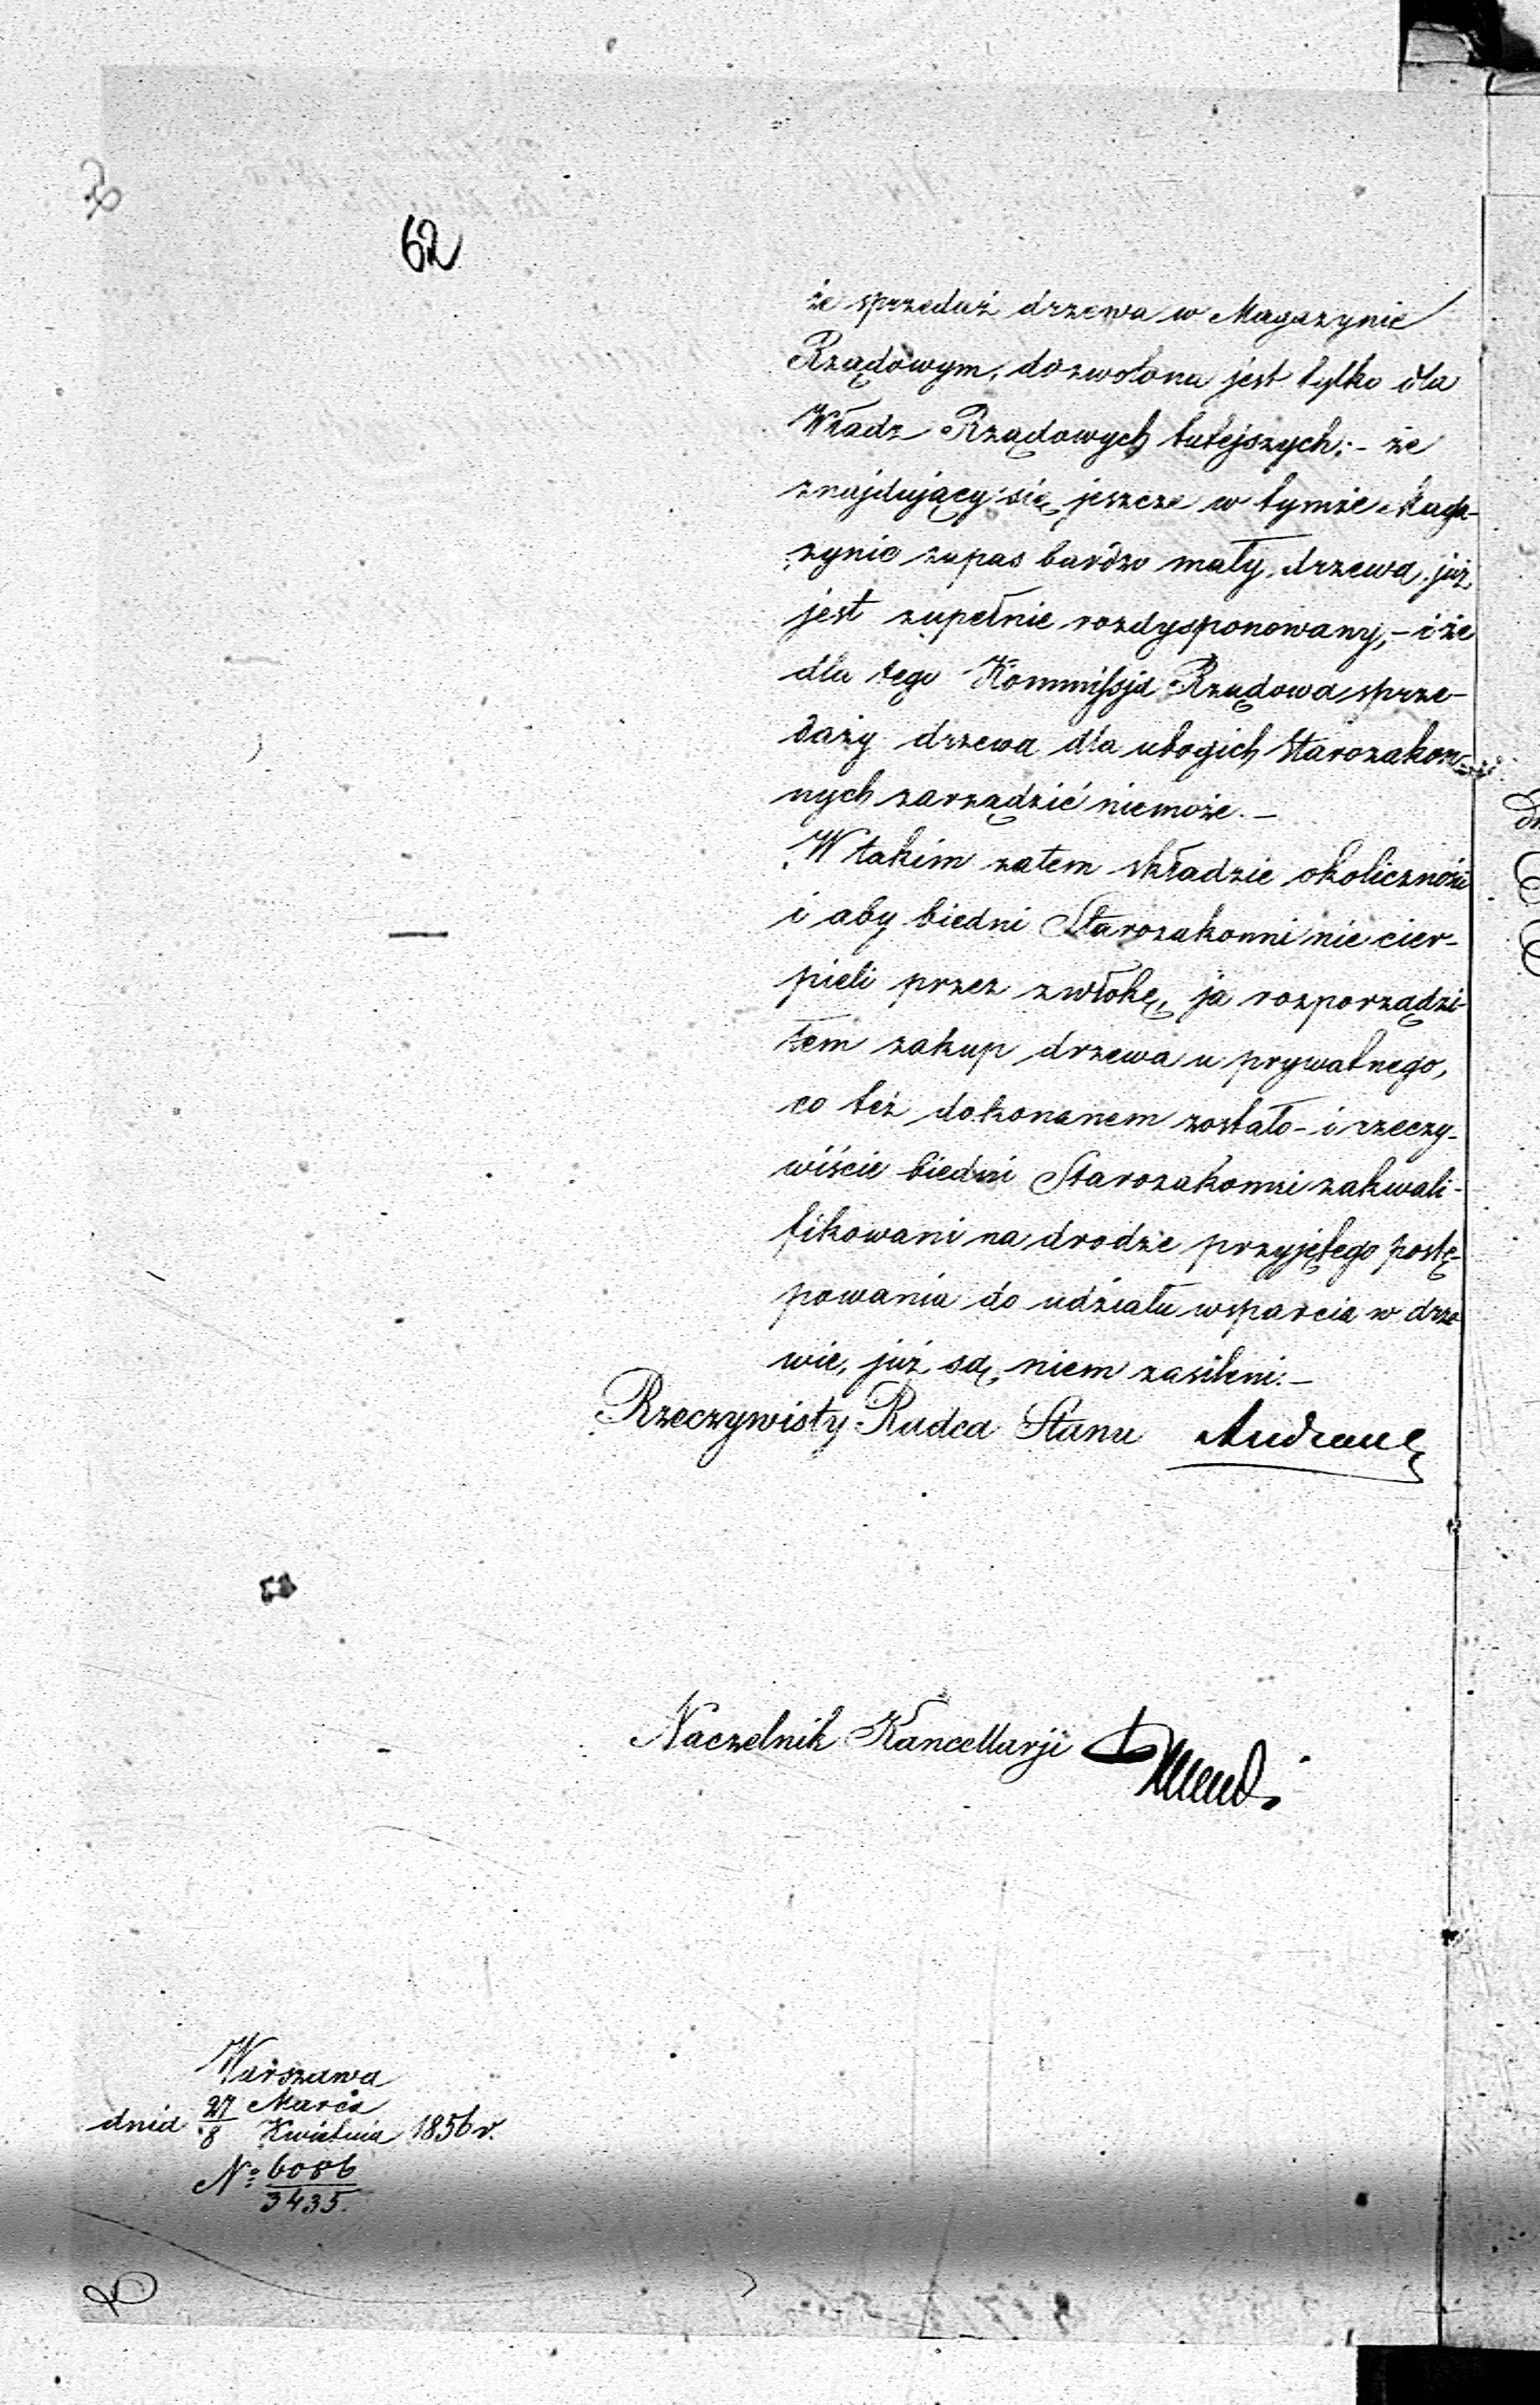 62
że sprzedaż drzewa w Magazynie
Rządowym, dozwolona jest tylko dla
Władz Rządowych tutejszych; - że
znajdujący się jeszcze w tymże Maga-
zynie zapas bardzo mały drzewa, już
jest zupełnie rozdysponowany, - i że
dla tego Kommissja Rządowa sprze-
daży drzewa dla ubogich Starozakon-
nych zarządzić niemoże. -
W takim zatem składzie okoliczności
i aby biedni Starozakonni nie cier-
pieli przez zwłokę, ja rozporządzi-
łem zakup drzewa u prywatnego,
co też dokonanem zostało - i rzeczy-
wiście biedni Starozakonni zakwali-
fikowani na drodze przyjętego postę-
powania do udziału wsparcia w drze
wie, już są niem zasileni. -
Rzeczywisty Radca Stanu Andrault
Naczelnik Kancellarji
Warszawa
dnia 27 Marca
8 Kwietnia 1856 r.
N: 6086
3435.